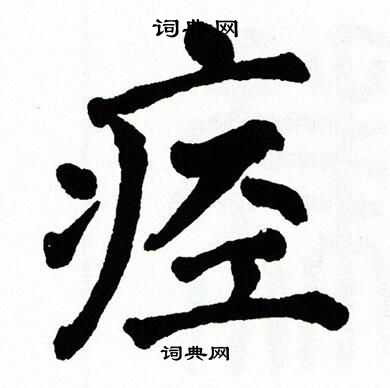 词典网
痉
词典网